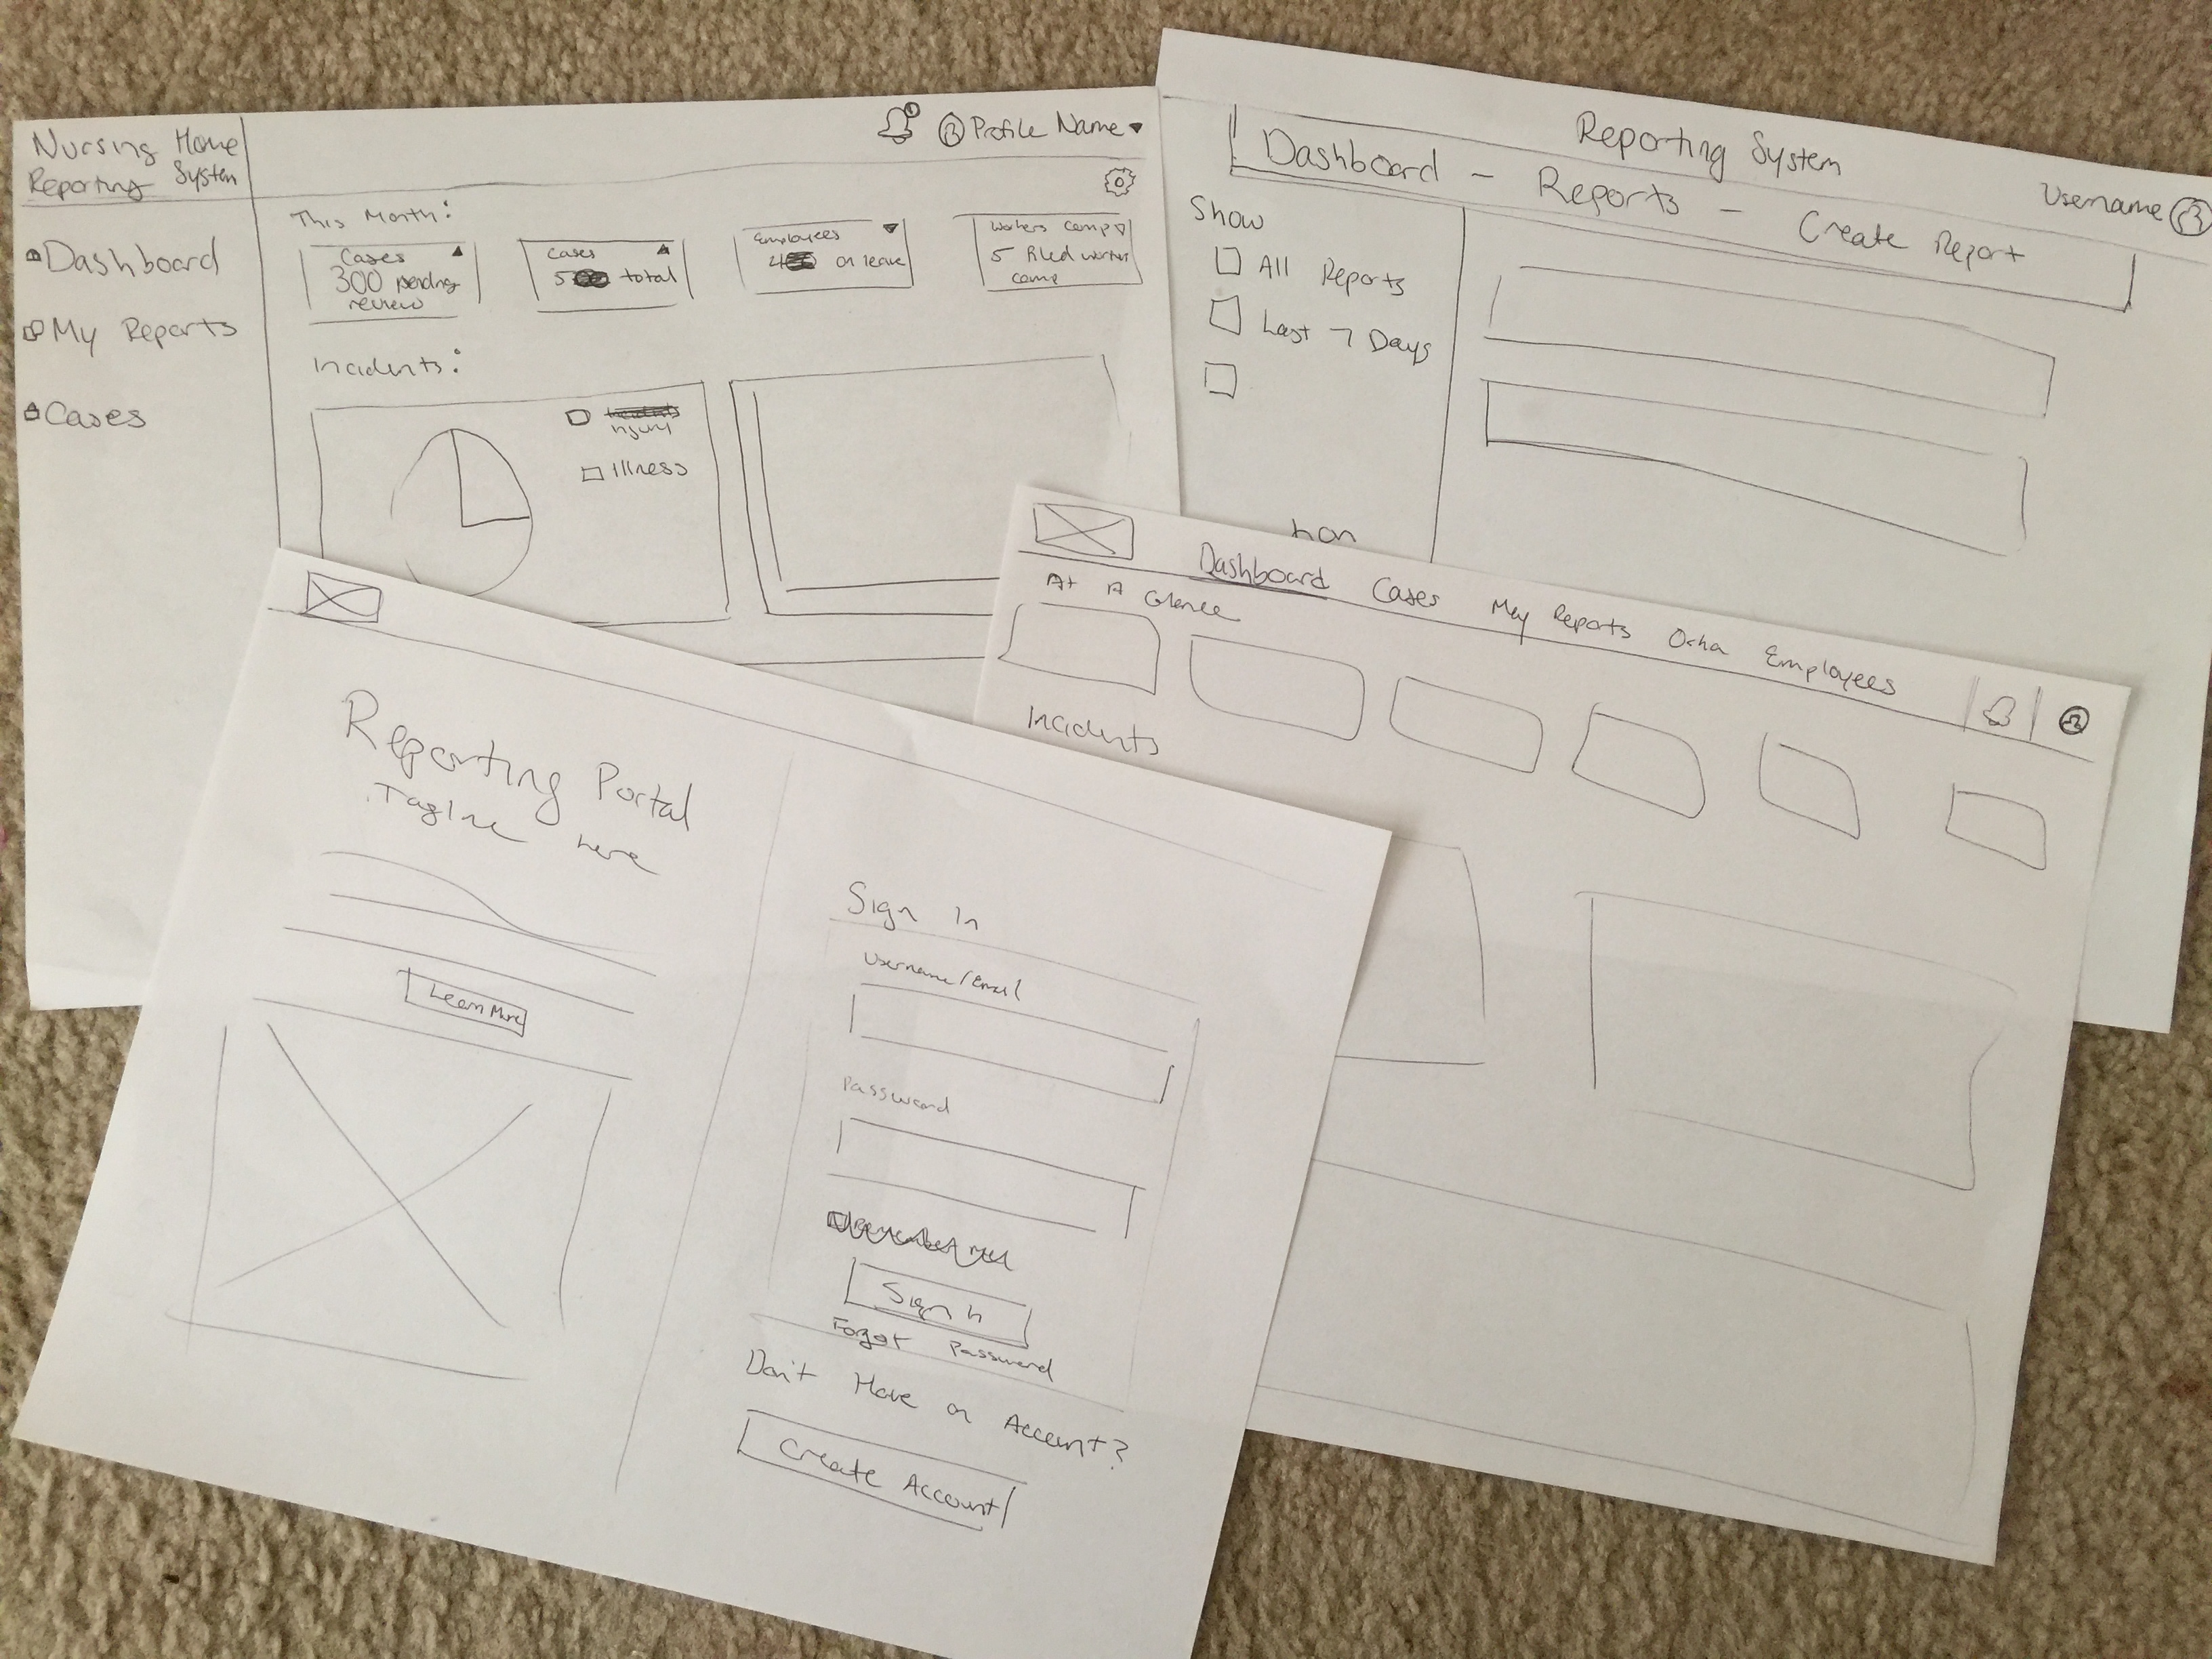 Nursing Home
Reporting System
Profile Name
Dashboard
My Reports
Cases
This Month:
Cases
300 pending
review
Cases
5 total
Employees
4 on leave
Workers comp
5 filed worker
comp
Incidents:
injury
Illness
Reporting System
Username
Dashboard - Reports - Create Report
Show
All Reports
Last 7 Days
Dashboard Cases My Reports Osha Employees
At A Glance
Incidents
Reporting Portal
Tagline here
Learn More
Sign In
Username/Email
Password
Remember me
Sign In
Forgot Password
Don't Have an Account?
Create Account